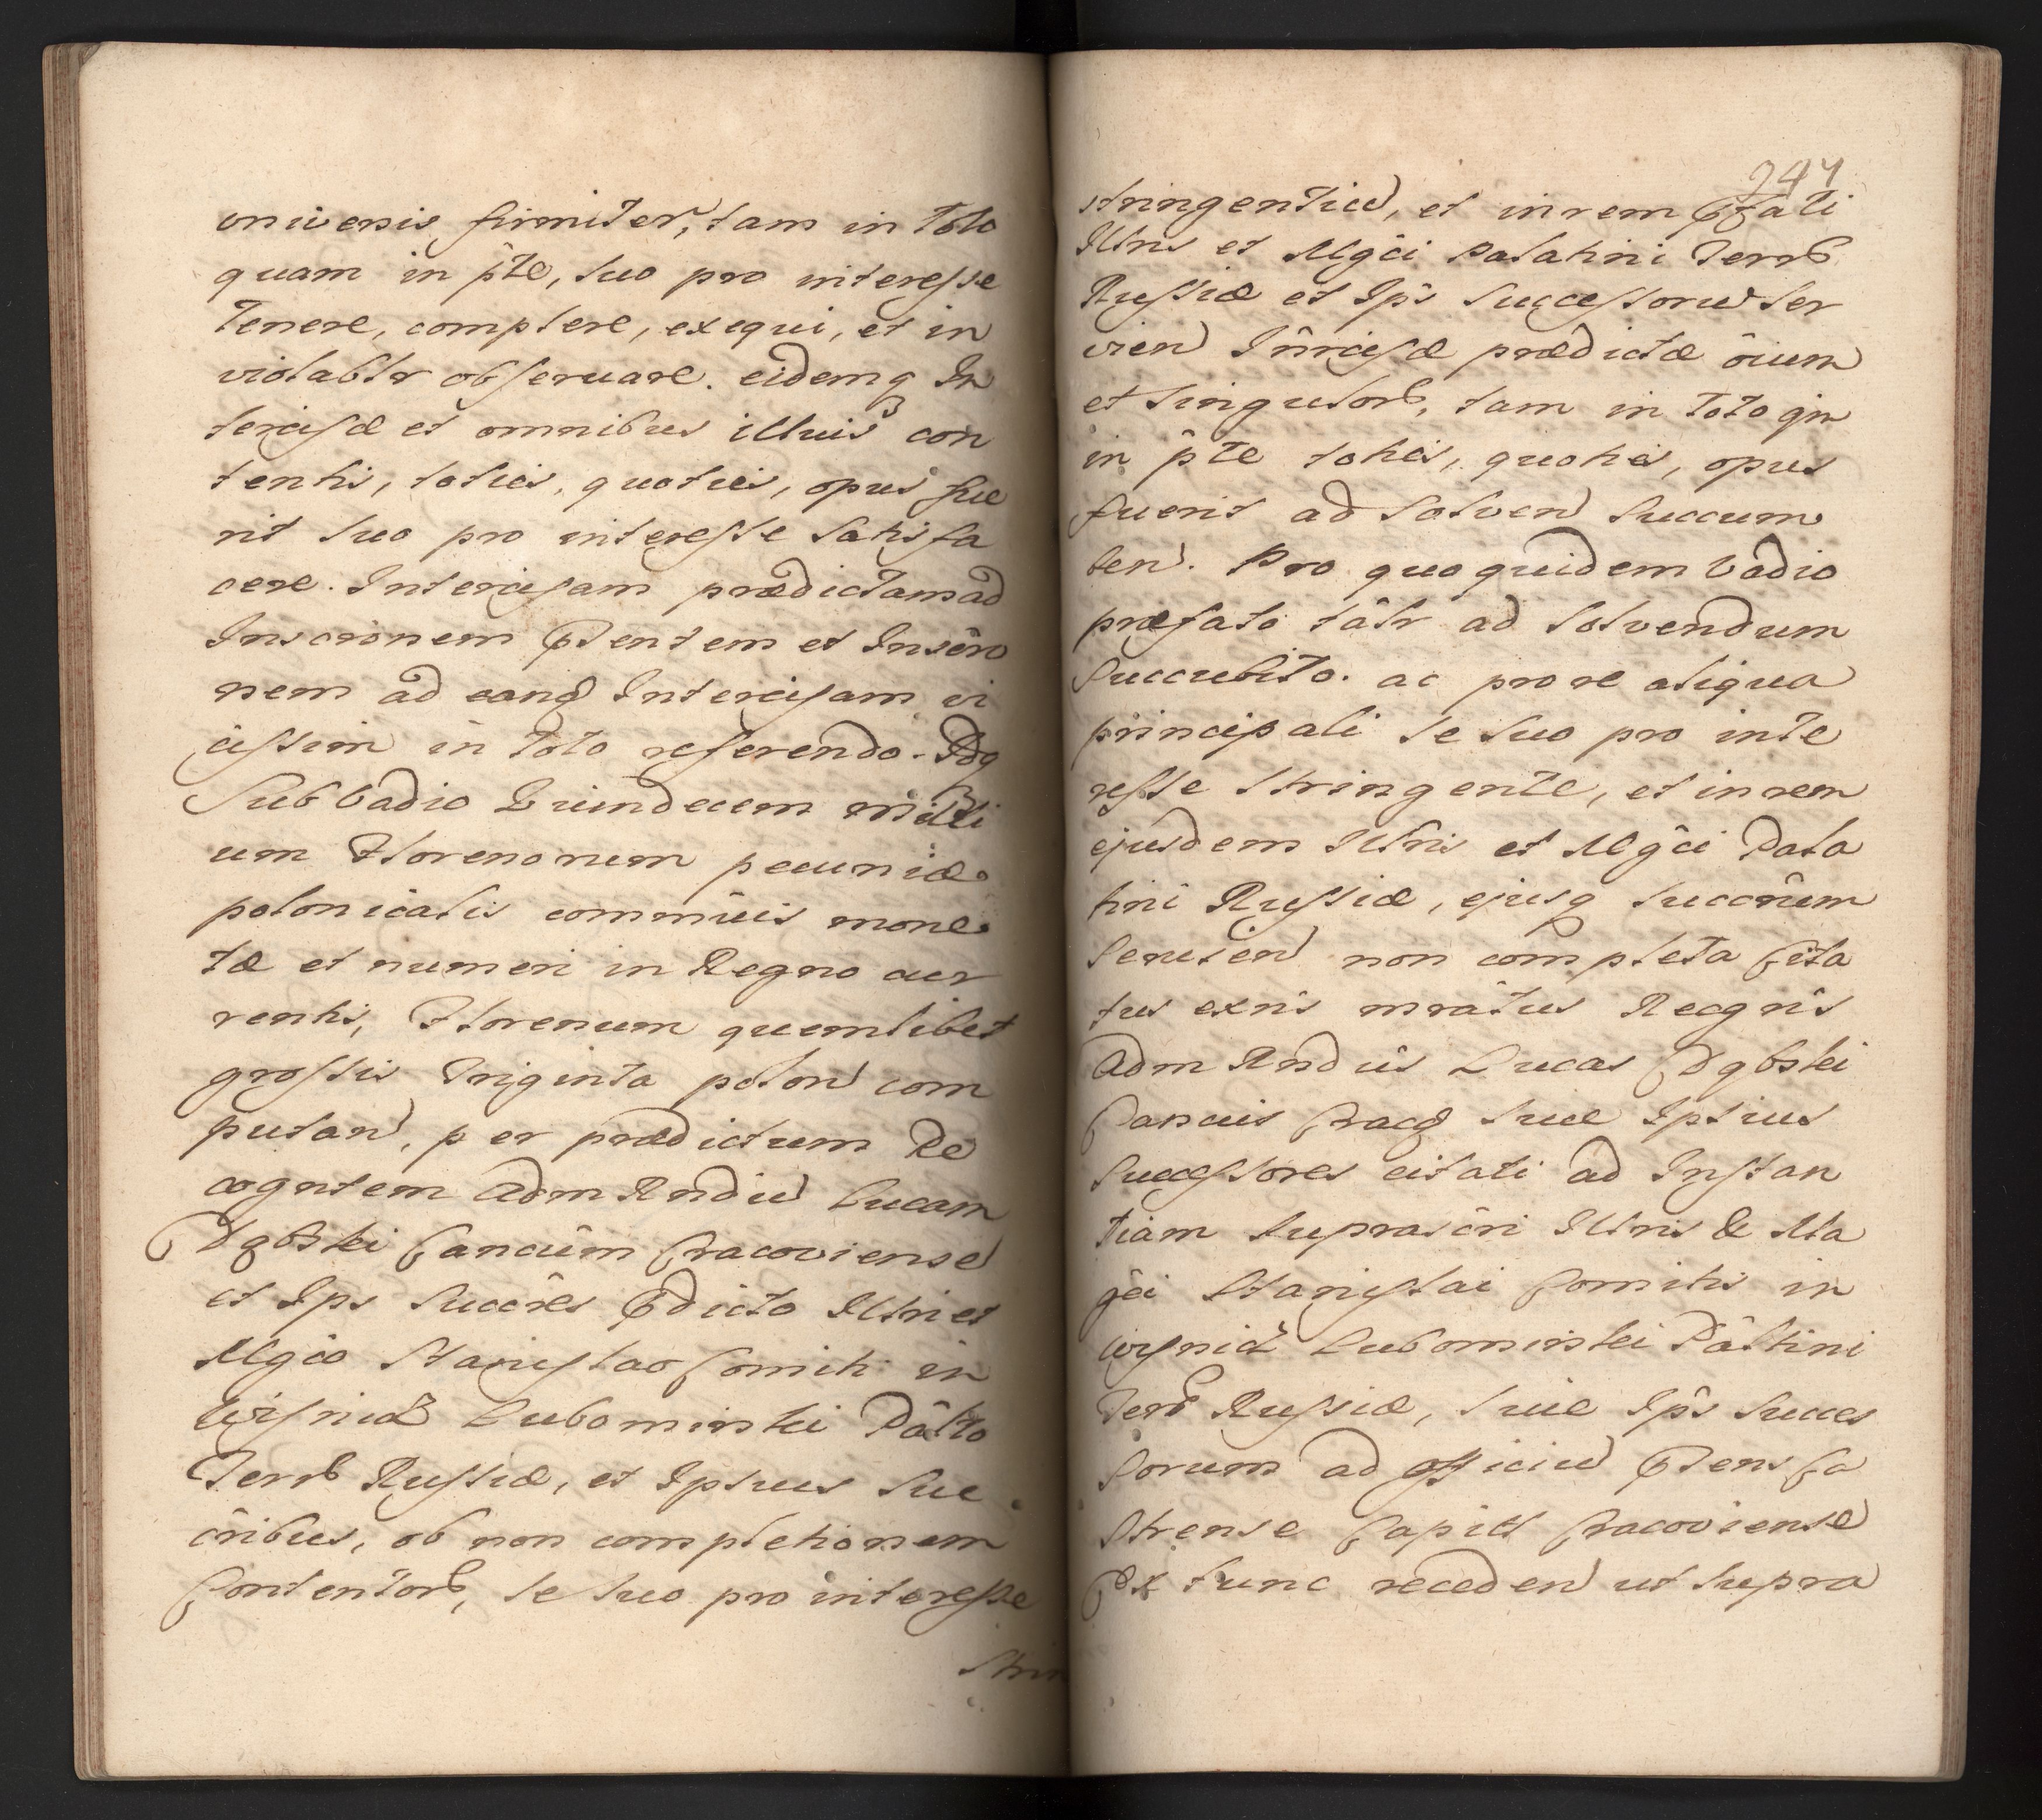 universis firmiter, tam in toto
quam in p̃te, suo pro interesse
Tenere, complere, exequi, et in
violablr observare. eidemq̃ In
tercisæ et omnibus illius con
tentis, toties, quoties, opus fue
rit suo pro interesse satisfa
cere. Intercisam prædictam ad
Inscrõnem Pñtem et Inscrõ
nem ad eand Intercisam vi
cissim in toto referendo. Idq̃
Sub Vadio Quindecem milli
um Florenorum pecuniæ
polonicalis commũis mone
tæ et numeri in Regno cur
rentis, Florenum quemlibet
grossis Triginta polon com
putan, per prædictum Re
cogntem Adm Rndũ Lucam
Dąbski Cancũm Cracoviense
et Ips Succr̃es Pdicto Illri et
Mgco Stanislao Comiti in
Wisnicz Lubomirski Pãlto
Terr Russiæ, et Ipsius Suc
cr̃ibus, ob non completionem
Contentor, se suo pro interesse
Strin
247
stringentiũ, et in rem Pfati
Illris et Mgci Palatini Terr
Russiæ et Ip̃s Successorũ ser
vien Iñrcisæ prædictæ õium
et singulor, tam in toto qm
in p̃te toties, quoties, opus
fuerit ad solven succum
ben. Pro quo quidem Vadio
præfato tãlr ad solvendum
Succubito. ac pro re aliqua
principali se suo pro inte
resse stringente, et in rem
ejusdem Illris et Mgci Pala
tini Russiæ, ejusq̃ succr̃um
servien non completa Cita
tus exn̄s mrãtus Recgñs
Adm Rndũs Lucas Dąbski
Cancũs Crac sive Ipsius
Successores citati ad Instan
tiam suprascr̃i Illris & Ma
gci Stanislai Comitis in
Wisnicz Lubomirski Pãltini
Terr Russiæ, sive Ip̃s Succes
sorum ad officiũ Pñs Ca
strense Capitl Cracoviense
Ex tunc receden ut supra